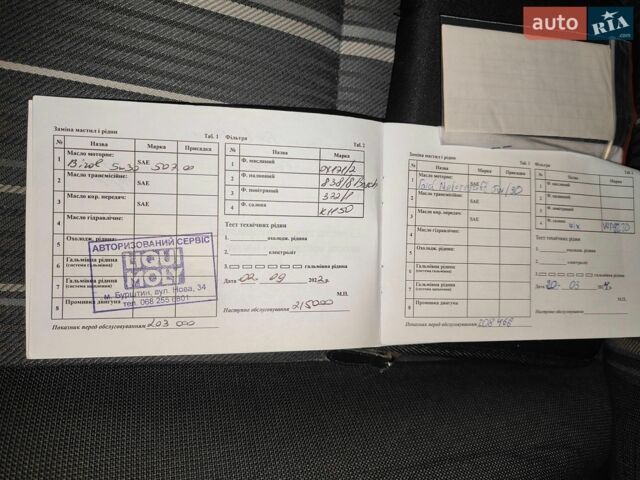 auto RIA.com
Заміна мастил і рідин Таб. 1
№ Назва Марка Присадки
1 Масло моторне: SAE 5w30 507 00
2 Масло трансмісійне: SAE
3 Масло кор. передач: SAE
4 Масло гідравлічне:
5 Охолодж. рідина:
6 Гальмівна рідина
(система гальмівна)
7 Гальмівна рідина
(система зчеплення)
8 Промивка двигуна
Показник перед обслуговуванням 203 000
АВТОРИЗОВАНИЙ СЕРВІС
LIQUI MOLY
м. Бурштин, вул. Нова, 34
тел. 068 255 0801
Фільтри Таб. 2
№ Назва Марка
1 Ф. масляний
2 Ф. паливний 838/8 Bosch
3 Ф. повітряний
4 Ф. салона
Тест технічних рідин
1. охолодж. рідини
2. електроліт
3. гальмівна рідина
Дата 02 09 2023р.
М.П.
Наступне обслуговування 215000
Заміна мастил і рідин Таб. 1
№ Назва Марка Присадки
1 Масло моторне: SAE 5w/30
2 Масло трансмісійне: SAE
3 Масло кор. передач: SAE
4 Масло гідравлічне:
5 Охолодж. рідина:
6 Гальмівна рідина
(система гальмівна)
7 Гальмівна рідина
(система зчеплення)
8 Промивка двигуна
Показник перед обслуговуванням 208 468
Фільтри
№ Назва
1 Ф. масляний
2 Ф. паливний
3 Ф. повітряний
4 Ф. салона
Тест технічних рідин
1. охолодж. рідини
2. електроліт
3. гальмівна рідина
Дата 20 03
М.П.
Наступне обслуговування